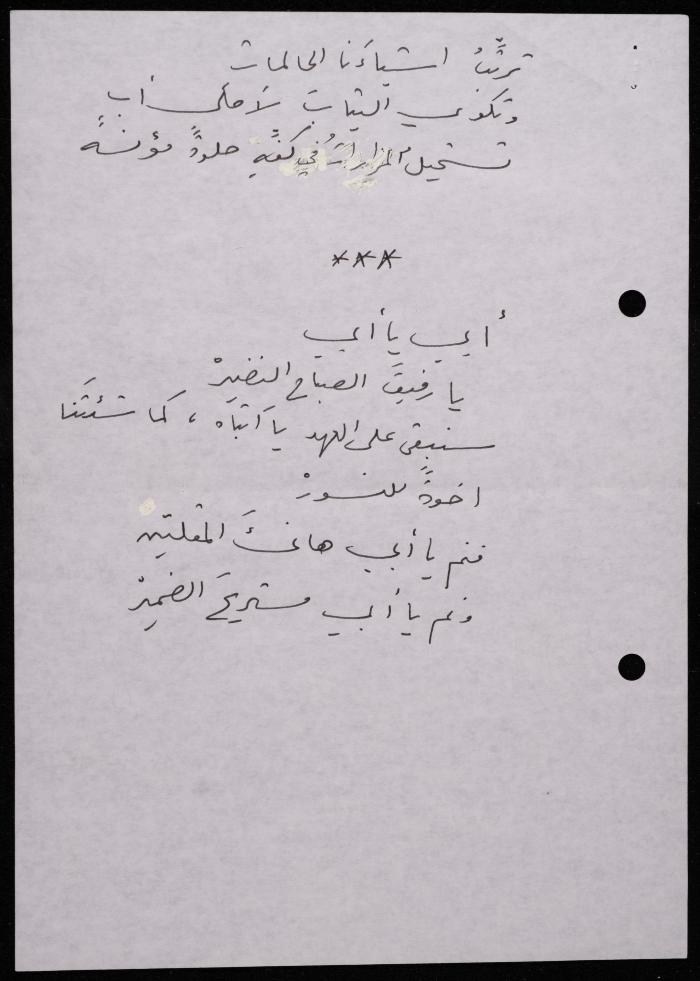 ترتّبُ اشياءَنا الحالمات
وتكوي الثيابَ لأحلى أبٍ
تستحيل المراراتُ في كفّهِ حلوةً مؤنسةً
***
أبي يا أبي
يا رفيقَ الصباحِ النضيرْ
سنبقى على العهد يا أبتاه ، كما شئتَنا
اخوةً للنسورْ
فنم يا أبي هانئَ المقلتين
ونم يا أبي مستريحَ الضميرْ